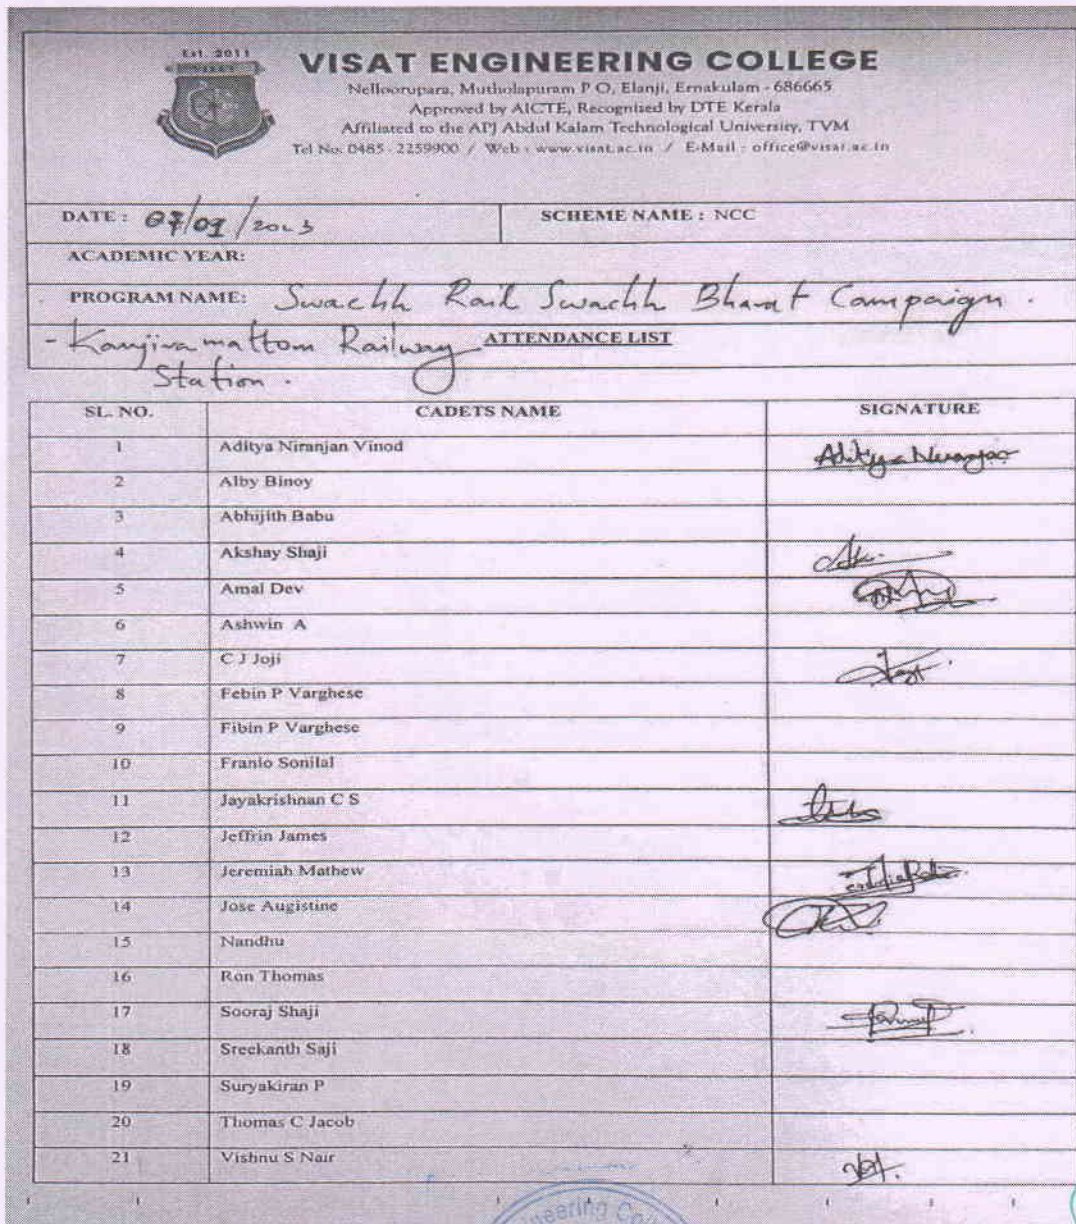 Est. 2011
VISAT
VISAT ENGINEERING COLLEGE
Nelloorupara, Mutholapuram P O, Elanji, Ernakulam - 686665
Approved by AICTE, Recognised by DTE Kerala
Affiliated to the APJ Abdul Kalam Technological University, TVM
Tel No: 0485 - 2259900 / Web : www.visat.ac.in / E-Mail : office@visat.ac.in
DATE : 07/01/2023 SCHEME NAME : NCC
ACADEMIC YEAR:
PROGRAM NAME: Swachh Rail Swachh Bharat Campaign.
- Kanjiramattom Railway ATTENDANCE LIST
Station.
SL. NO. CADETS NAME SIGNATURE
1 Aditya Niranjan Vinod Aditya Niranjan
2 Alby Binoy
3 Abhijith Babu
4 Akshay Shaji
5 Amal Dev
6 Ashwin A
7 C J Joji
8 Febin P Varghese
9 Fibin P Varghese
10 Franio Sonilal
11 Jayakrishnan C S
12 Jeffrin James
13 Jeremiah Mathew
14 Jose Augistine
15 Nandhu
16 Ron Thomas
17 Sooraj Shaji
18 Sreekanth Saji
19 Suryakiran P
20 Thomas C Jacob
21 Vishnu S Nair